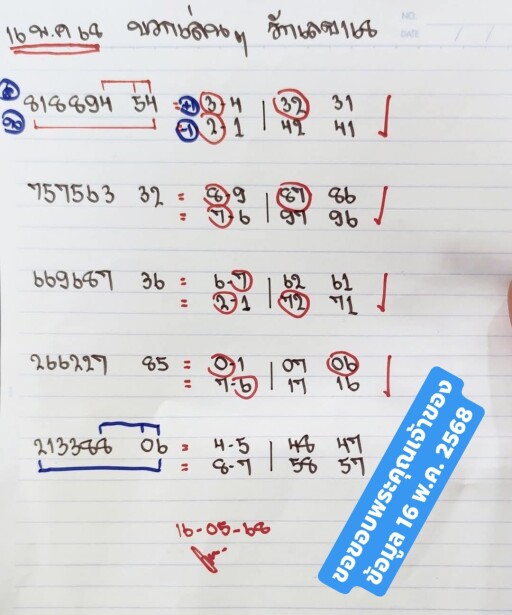 NO.
DATE
16 พ.ค 68 บวกเล่นๆ รักเลข168
บ 818894 54 = +1 3-4 | 32 31
ล = -1 2-1 | 42 41
757563 32 = 8-9 | 87 86
= 7-6 | 97 96
669687 36 = 6-7 | 62 61
= 2-1 | 72 71
266227 85 = 0-1 | 07 06
= 7-6 | 17 16
213388 06 = 4-5 | 48 47
= 8-7 | 58 57
16-05-68
ขอขอบพระคุณเจ้าของ
ข้อมูล 16 พ.ค. 2568